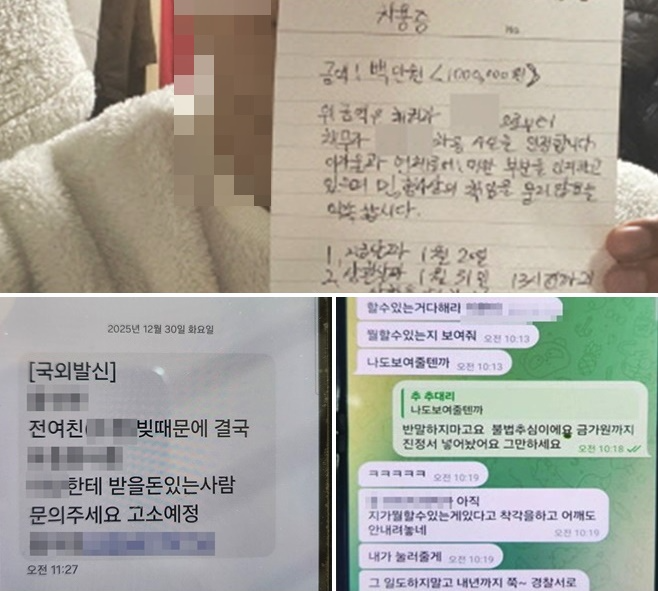 차용증
No
금액! 백만원 <1000,000원>
위 금액은 채권자 으로부터
채무자 차용 사실을 인정합니다
이자율과 연체료에 대한 부분을 인지하고
있으며 민,형사상의 책임을 묻지 않음을
약속 합니다.
1, 지급날짜 1월 24일
2, 상환날짜 1월 31일 13시까지
2025년 12월 30일 화요일
[국외발신]
전여친 빚때문에 결국
한테 받을돈있는사람
문의주세요 고소예정
오전 11:27
할수있는거다해라
뭘할수있는지 보여줘 오전 10:13
나도보여줄텐까 오전 10:13
추 추대리
나도보여줄텐까
반말하지마고요 불법추심이에요 금가원까지
진정서 넣어놨어요 그만하세요 오전 10:18
ㅋㅋㅋㅋㅋ 오전 10:19
아직
지가뭘할수있는게있다고 착각을하고 어깨도
안내려놓네 오전 10:19
내가 눌러줄게 오전 10:19
그 일도하지말고 내년까지 쭉~ 경찰서로